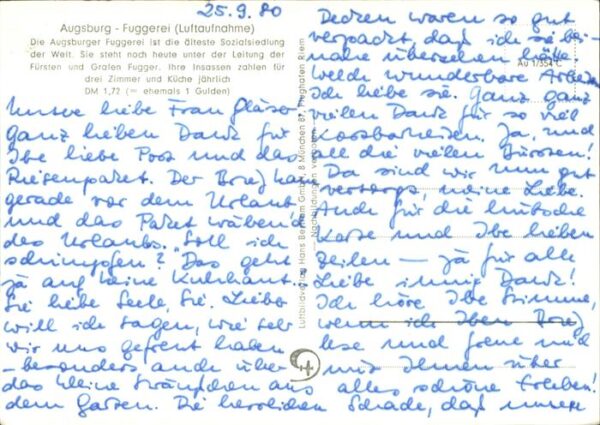 25.9.80
Augsburg - Fuggerei (Luftaufnahme)
Die Augsburger Fuggerei ist die älteste Sozialsiedlung
der Welt. Sie steht noch heute unter der Leitung der
Fürsten und Grafen Fugger. Ihre Insassen zahlen für
drei Zimmer und Küche jährlich
DM 1,72 (= ehemals 1 Gulden)
Unsere liebe Frau Gläser
ganz lieben Dank für
Ihre liebe Post und das
Riesenpaket. Der Brief kam
gerade vor dem Urlaub
und das Paket während
des Urlaubs. "Soll ich
schimpfen? Das geht
ja auf keine Kuhhaut.
Sie liebe Seele, Sie. Liebe
will ich sagen, wie sehr
wir uns gefreut haben
- besonders auch über
das kleine Sträußchen aus
dem Garten. Die herrlichen
Luftbildverlag Hans Bertram GmbH, 8 München 87, Flughafen Riem
Nachbildungen verboten
Au 1/354 C
Decken waren so gut
verpackt, daß ich sie bei-
nahe übersehen hätte.
Welch wunderbare Arbeit.
Ich liebe sie. Ganz ganz
vielen Dank für so viel
Ja, und
all die vielen Bürsten!
Da sind wir nun gut
versorgt, meine Liebe.
Auch für die hübsche
Karte und Ihre lieben
Zeilen - ja für alle
Liebe innig Dank!
Ich höre Ihre Stimme,
wenn ich Ihren Brief
lese und freue mich
mit Ihnen über
alles schöne Erleben!
Schade, daß unsere